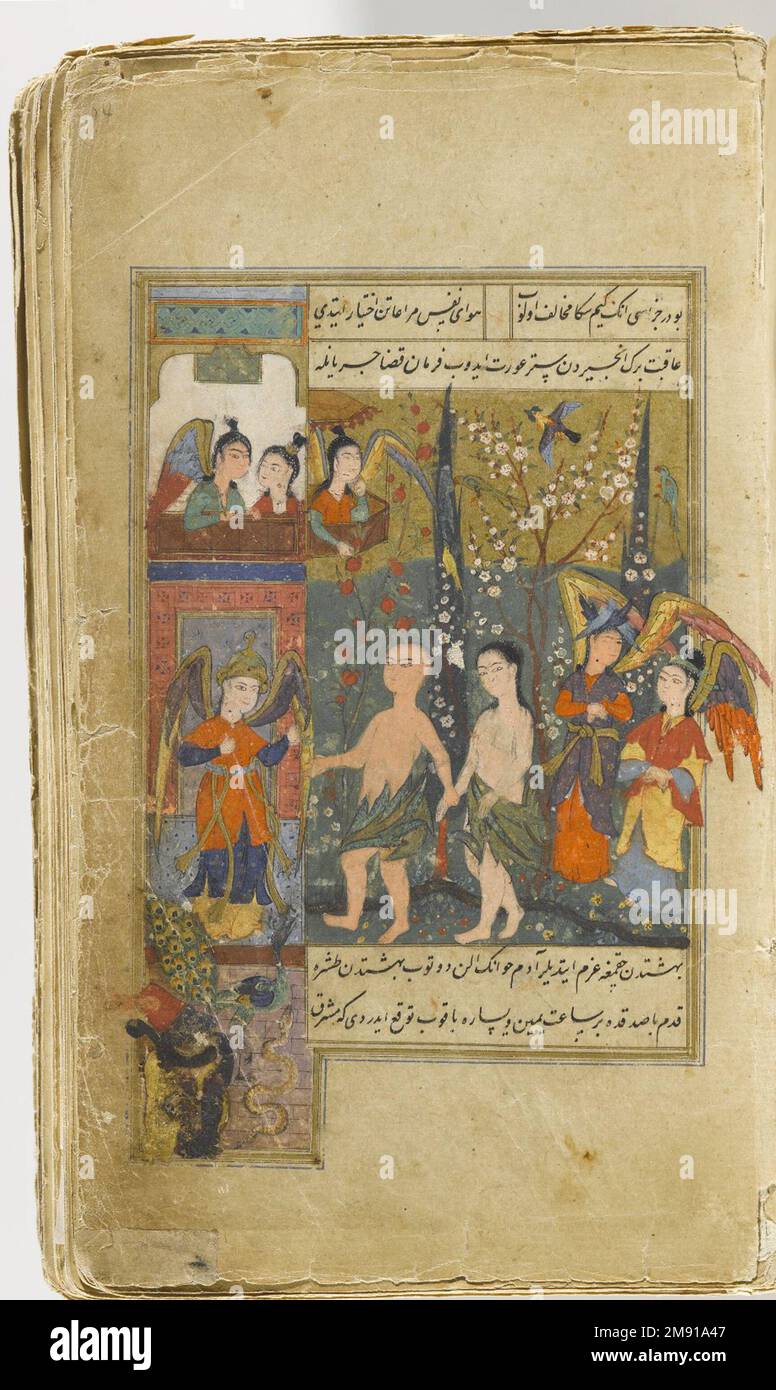 بودر جزاسی انک کیم سکا مخالف اولوب هوای نفس مراعاتن اختیار ایتدی
عاقبت برک انجیردن ستر عورت ایدوب فرمان قضا جریانله
بهشتدن چقمغه عزم ایتدیلر آدم حوانک الن دوتوب بهشتدن طشره
قدم باصدقده بر ساعت یمین و یساره باقوب توقع ایدردی که
alamy
Image ID: 2M91A47
www.alamy.com